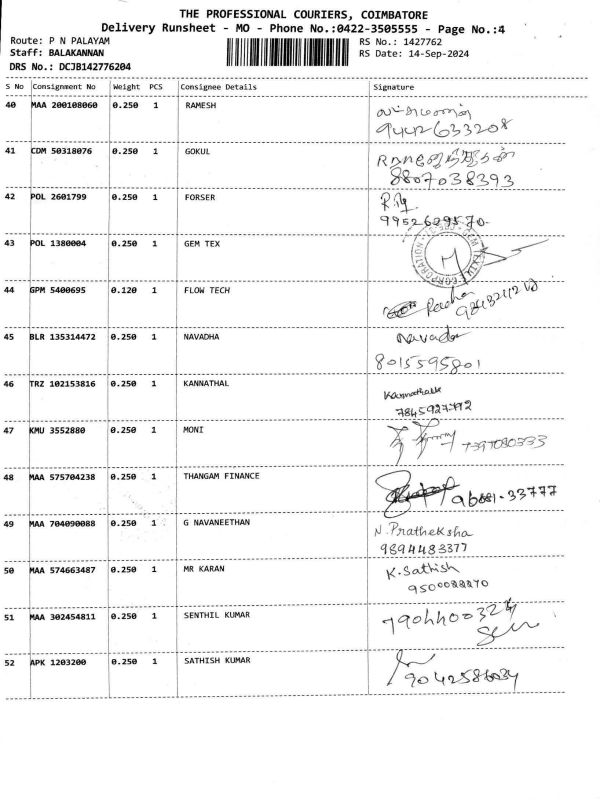 THE PROFESSIONAL COURIERS, COIMBATORE
Delivery Runsheet - MO - Phone No.:0422-3505555 - Page No.:4
Route: P N PALAYAM
RS No.: 1427762
Staff: BALAKANNAN
RS Date: 14-Sep-2024
DRS No.: DCJB142776204
S No Consignment No Weight PCS Consignee Details Signature
40 MAA 200108060 0.250 1 RAMESH
9442633208
41 CDM 50318076 0.250 1 GOKUL
8807038393
42 POL 2601799 0.250 1 FORSER
9952629570
43 POL 1380004 0.250 1 GEM TEX
44 GPM 5400695 0.120 1 FLOW TECH
Radha
45 BLR 135314472 0.250 1 NAVADHA
Navada
8015595801
46 TRZ 102153816 0.250 1 KANNATHAL
Kannathall
7845927772
47 KMU 3552880 0.250 1 MONI
48 MAA 575704238 0.250 1 THANGAM FINANCE
49 MAA 704090088 0.250 1 G NAVANEETHAN
N. Pratheksha
9894483377
50 MAA 574663487 0.250 1 MR KARAN
K. Sathish
9500088870
51 MAA 302454811 0.250 1 SENTHIL KUMAR
52 APK 1203200 0.250 1 SATHISH KUMAR